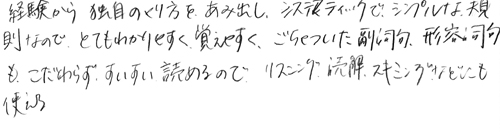 経験から 独自のやり方を あみ出し、システマティックで、シンプルな 規
則なので、とてもわかりやすく、覚えやすく、ごちゃついた 副詞句、形容詞句
も こだわらず、すいすい 読めるので リスニング、読解、スキミングなどにも
使える